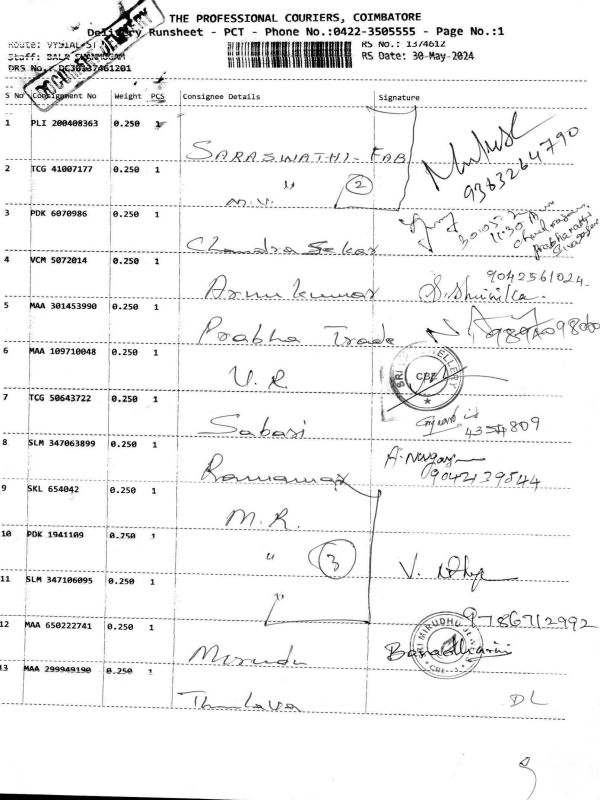 THE PROFESSIONAL COURIERS, COIMBATORE
Delivery Runsheet - PCT - Phone No.:0422-3505555 - Page No.:1
Route: VYSIAL-ST
RS No.: 1374612
Staff: BALA SHANMUGAM
RS Date: 30-May-2024
DRS No.: DC30137461201
DOCUMENT DELIVERY
S No Consignment No Weight PCS Consignee Details Signature
1 PLI 200408363 0.250 1
SARASWATHI - FAB
9363264790
2 TCG 41007177 0.250 1 " 2
M.V.
3 PDK 6070986 0.250 1
30.05.
11:30
Chandra Sekar
4 VCM 5072014 0.250 1
9042561024
Arunkumar
5 MAA 301453990 0.250 1
Prabha Trade
6 MAA 109710048 0.250 1
V.R
SRI JEWELLERY
CBE
7 TCG 50643722 0.250 1
Sabari
8 SLM 347063899 0.250 1
9042139544
9 SKL 654042 0.250 1
M.R.
10 PDK 1941109 0.250 1
" 3
11 SLM 347106095 0.250 1
"
9786712992
12 MAA 650222741 0.250 1
SRI MIRUDHU
CBE
Mirudu
13 MAA 299949190 0.250 1
DL